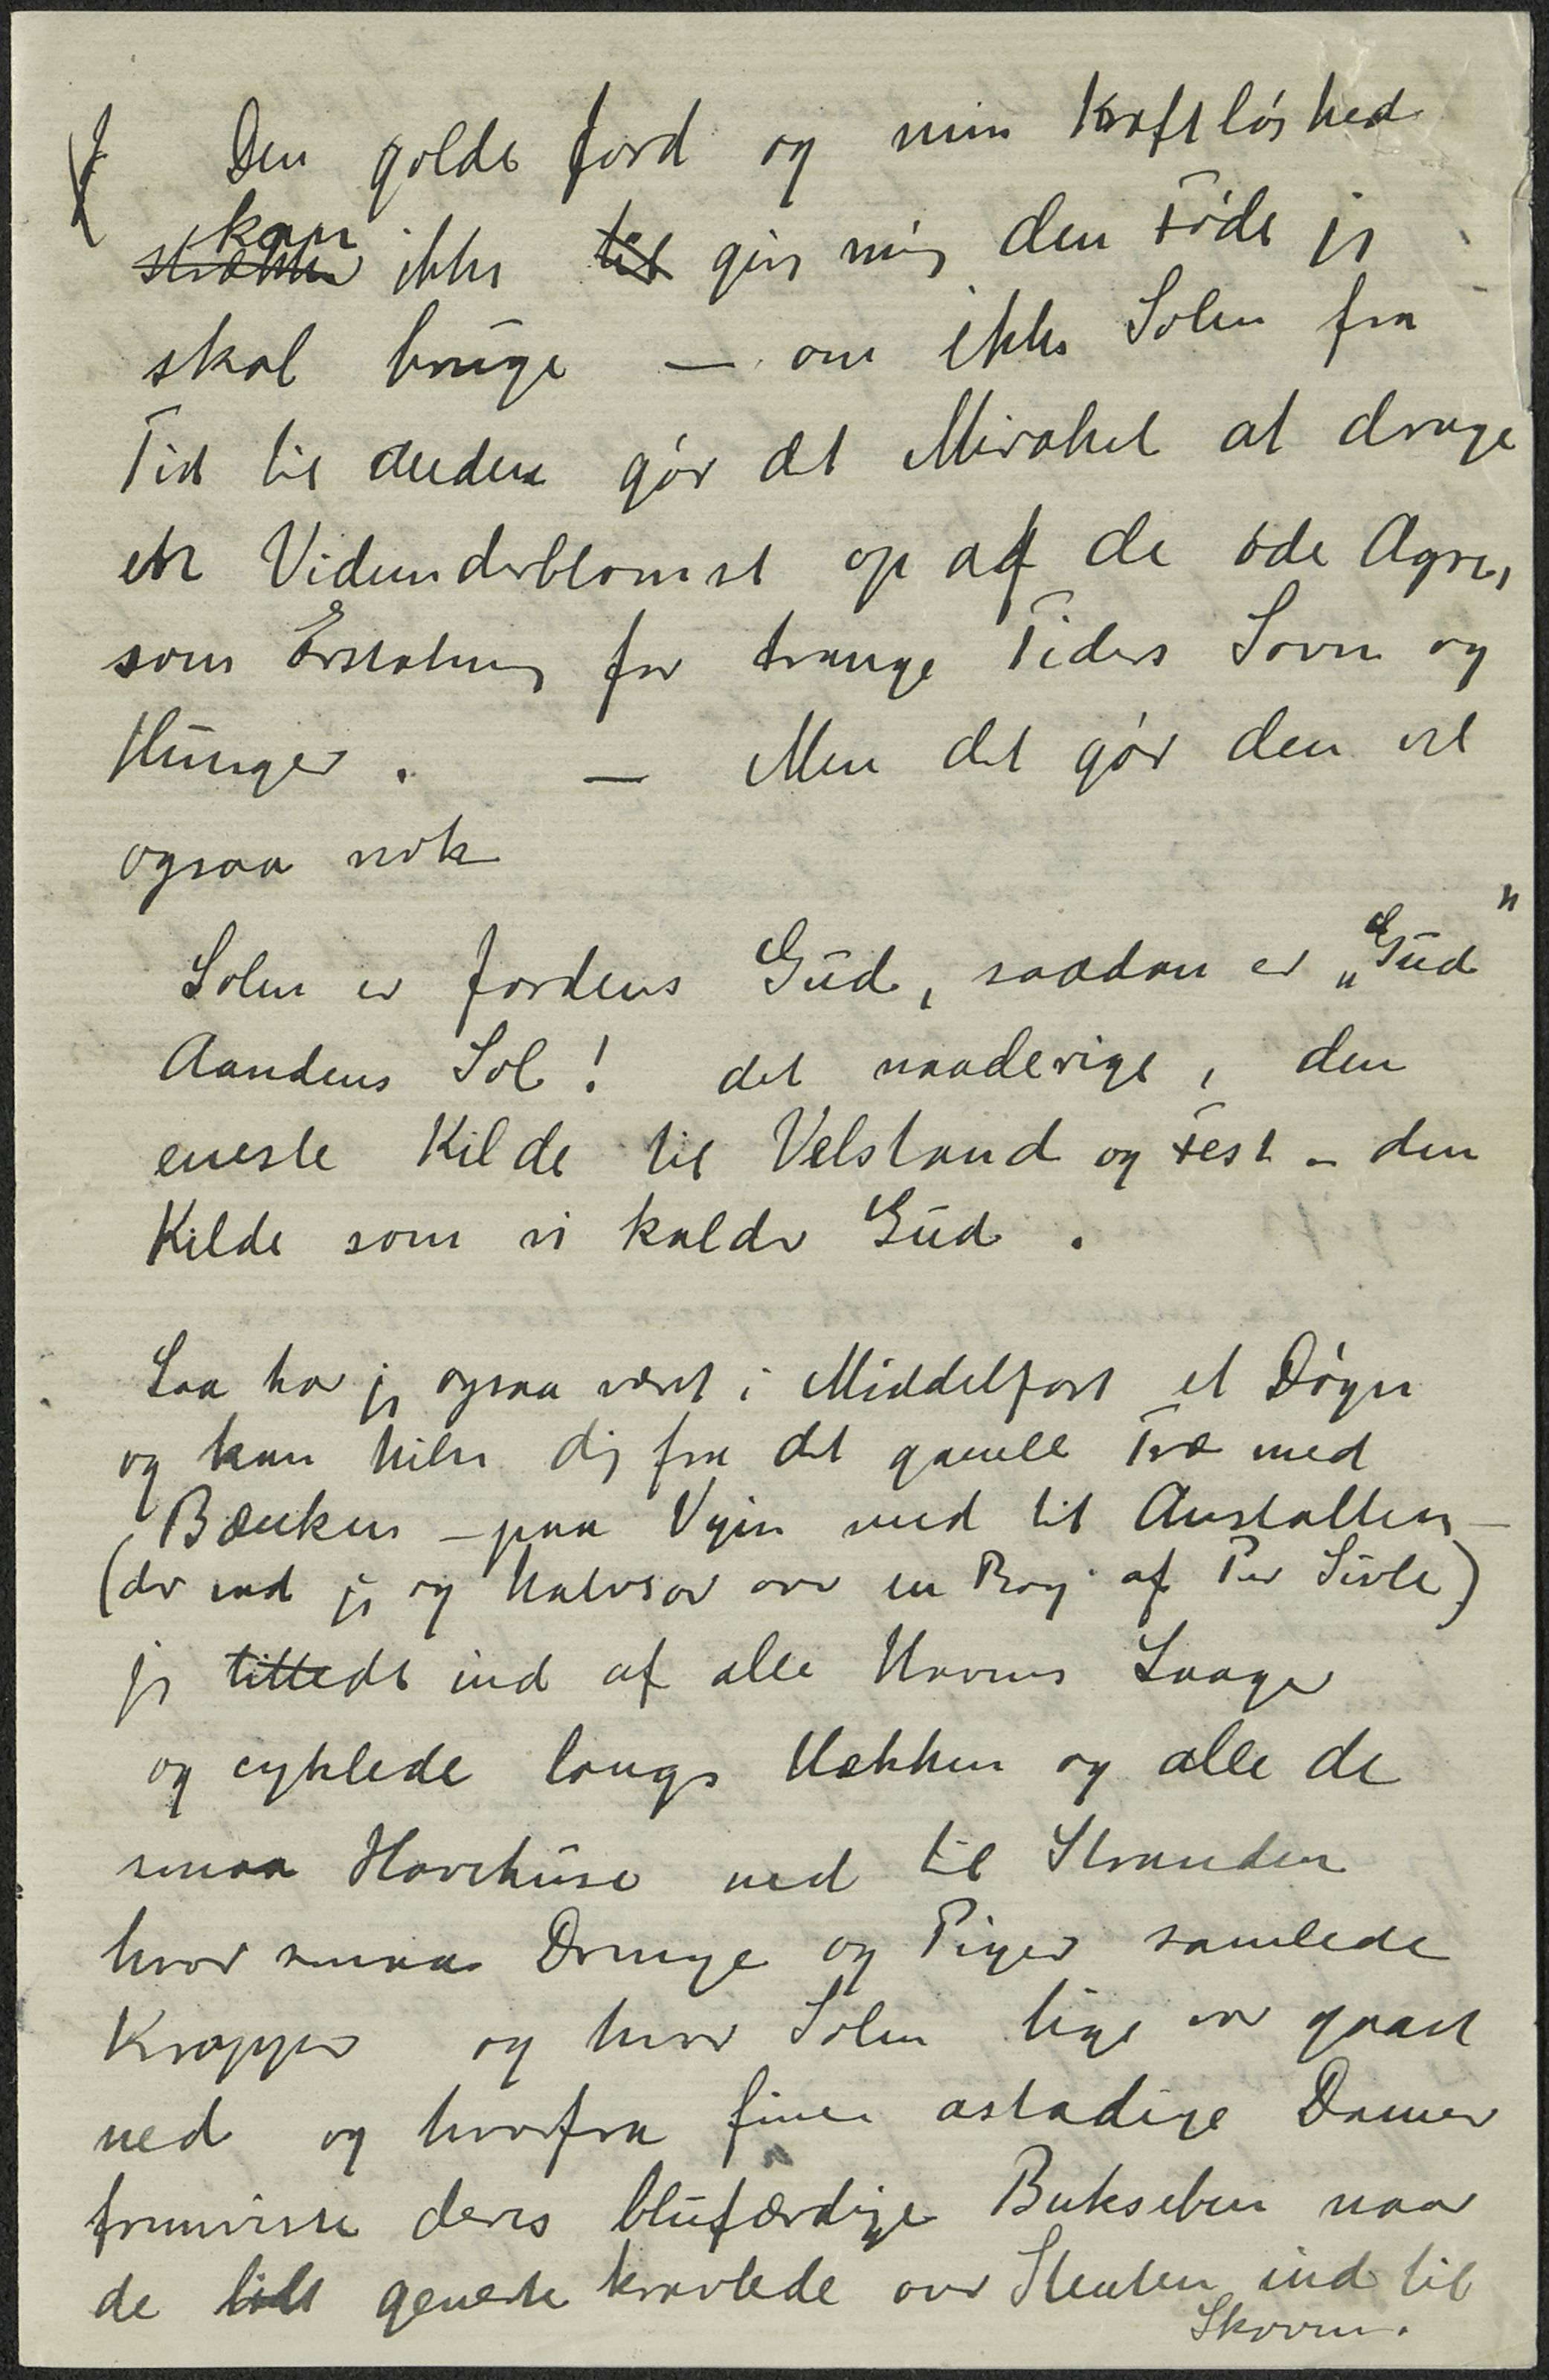 Den golde Jord og min Kraftløshed
kan ikke giv mig den Føde jeg
skal bruge — om ikke Solen fra
Tid til anden gør det Mirakel at drage
en Vidunderblomst op af de øde Agre,
som Erstatning for trange Tiders Savn og
Hunger. — Men det gør den vel
ogsaa nok
Solen er Jordens Gud, saadan er „Gud"
Aandens Sol! det naaderige, den
eneste Kilde til Velstand og Fest – den
Kilde som vi kalder Gud.
Saa har jeg ogsaa været i Middelfart et Døgn
og kan hilse dig fra det gamle Træ med
Bænken – paa Vejen ned til Anstalten –
(der sad jeg og Halvsov over en Bog af Per Sivle)
jeg tittede ind af alle Havens Laager
og cyklede langs Hækken og alle de
smaa Havehuse ned til Stranden
hvor smaa Drenge og Piger samlede
Krapper og hvor Solen lige var gaaet
ned og hvorfra fine astadige Damer
fremviste deres blufærdige Bukseben naar
de lidt generte kravlede over Stenten ind til
Skoven.